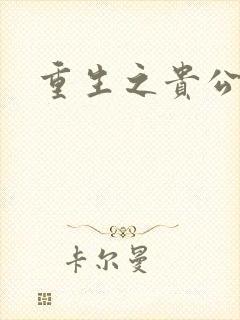 重生之貴公
卡尔曼